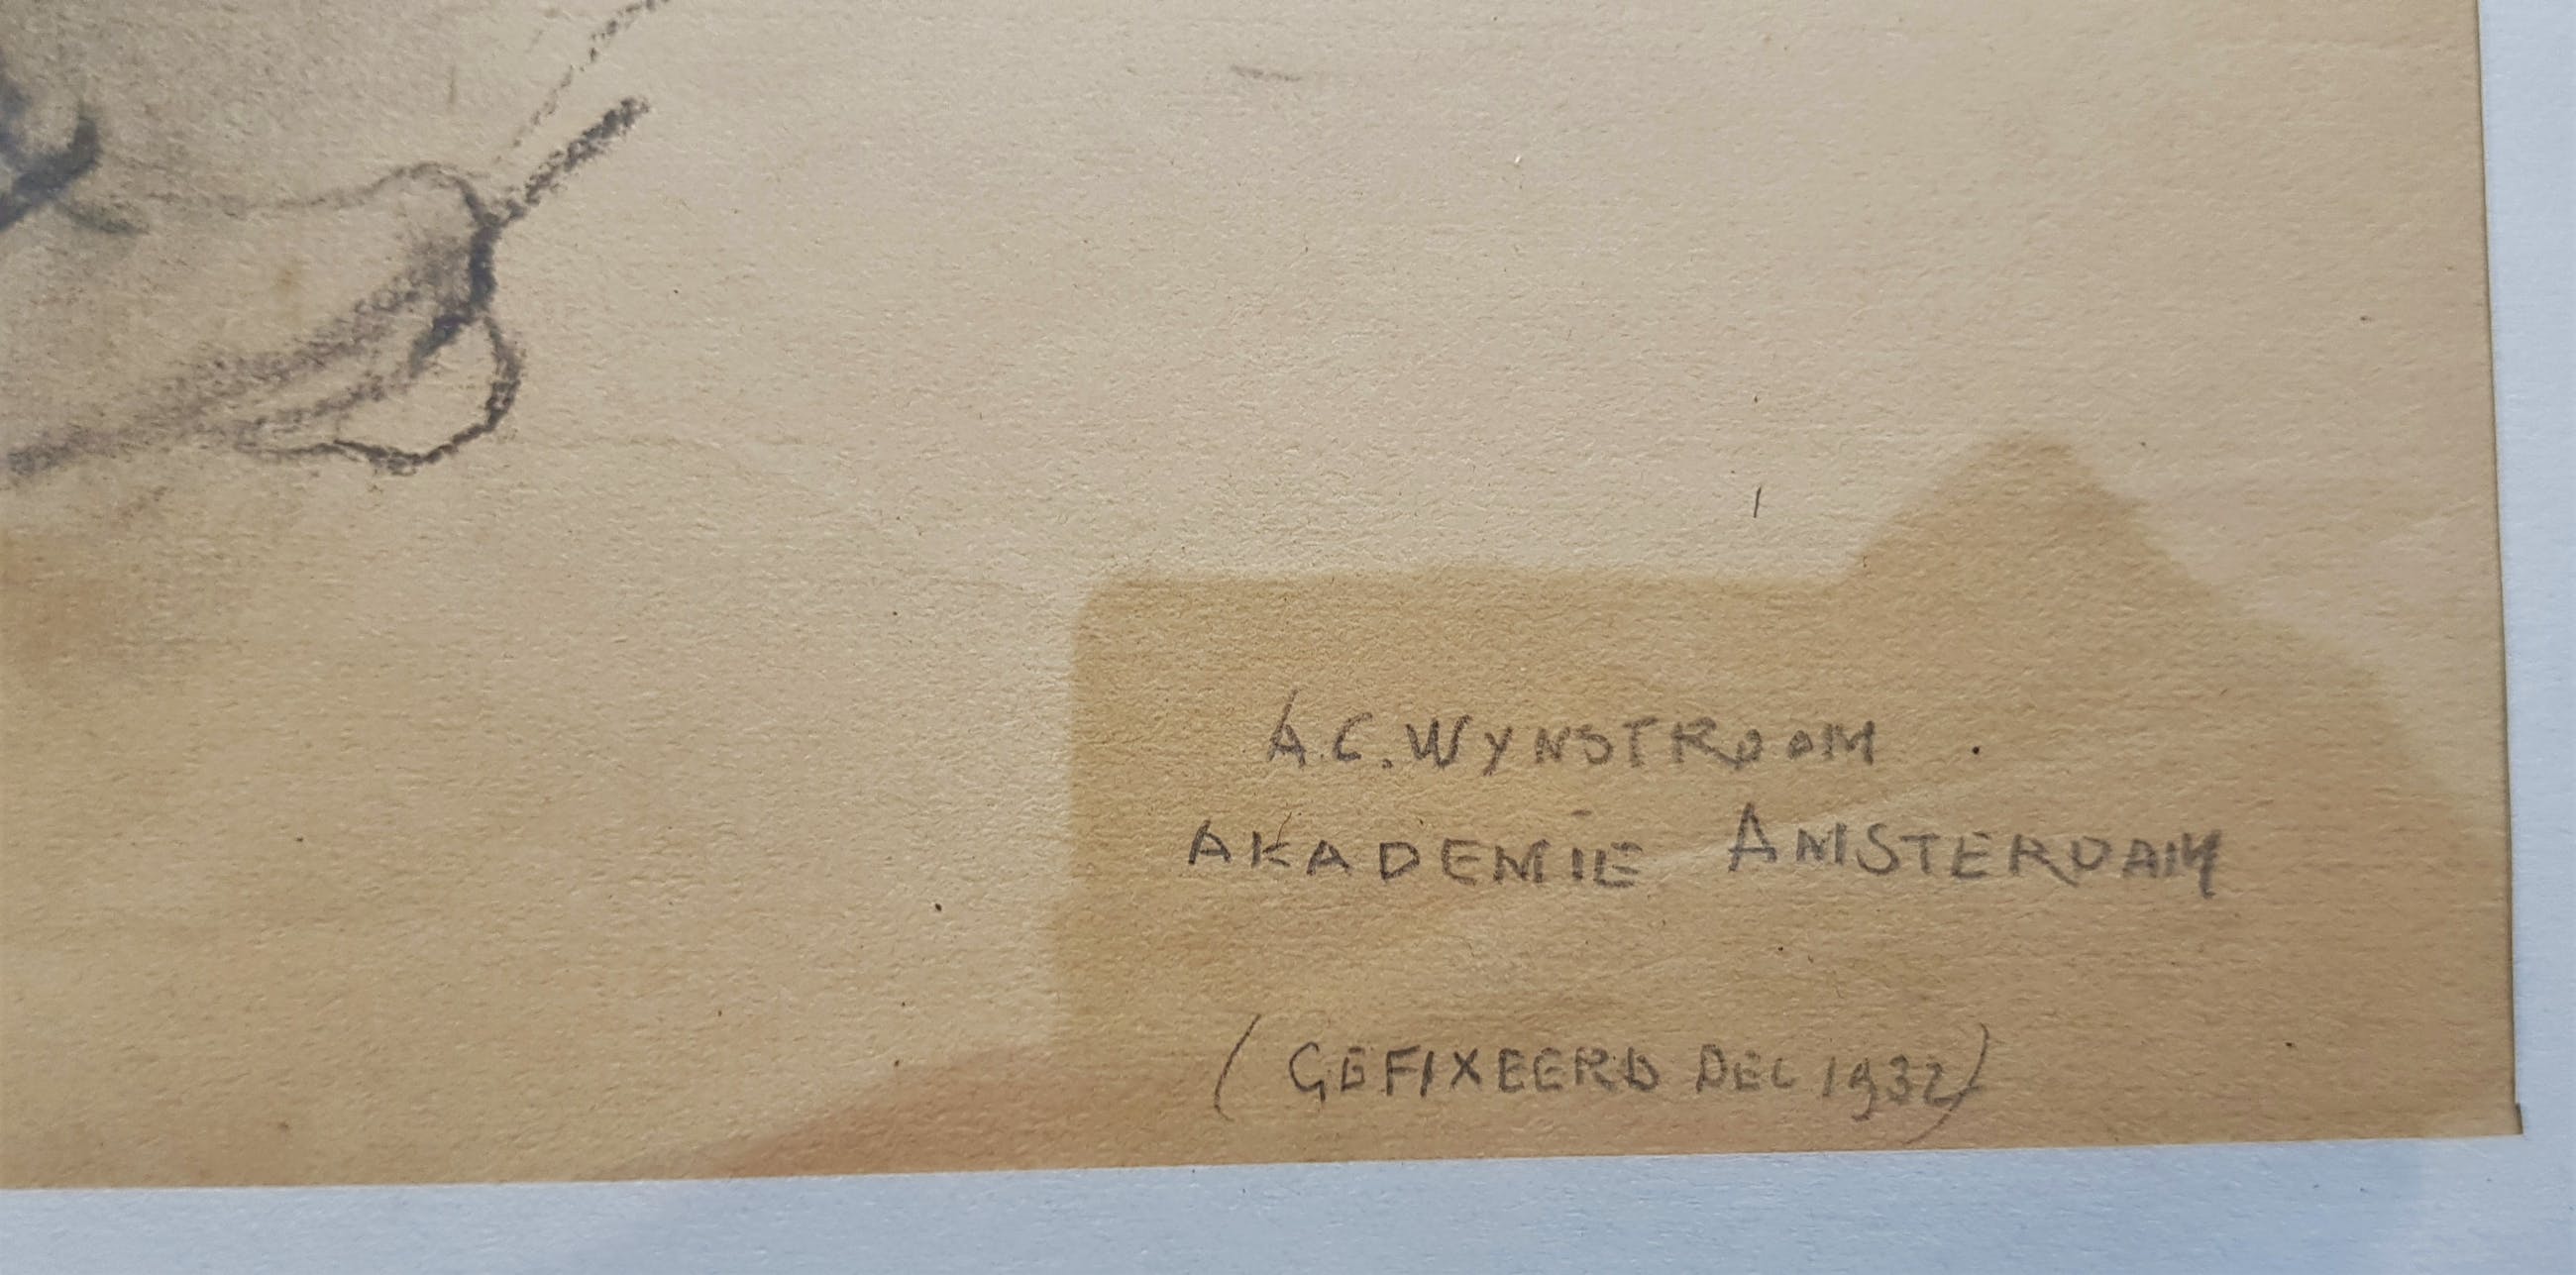 A.C. WYNSTROOM
AKADEMIE AMSTERDAM
(GEFIXEERD DEC 1932)